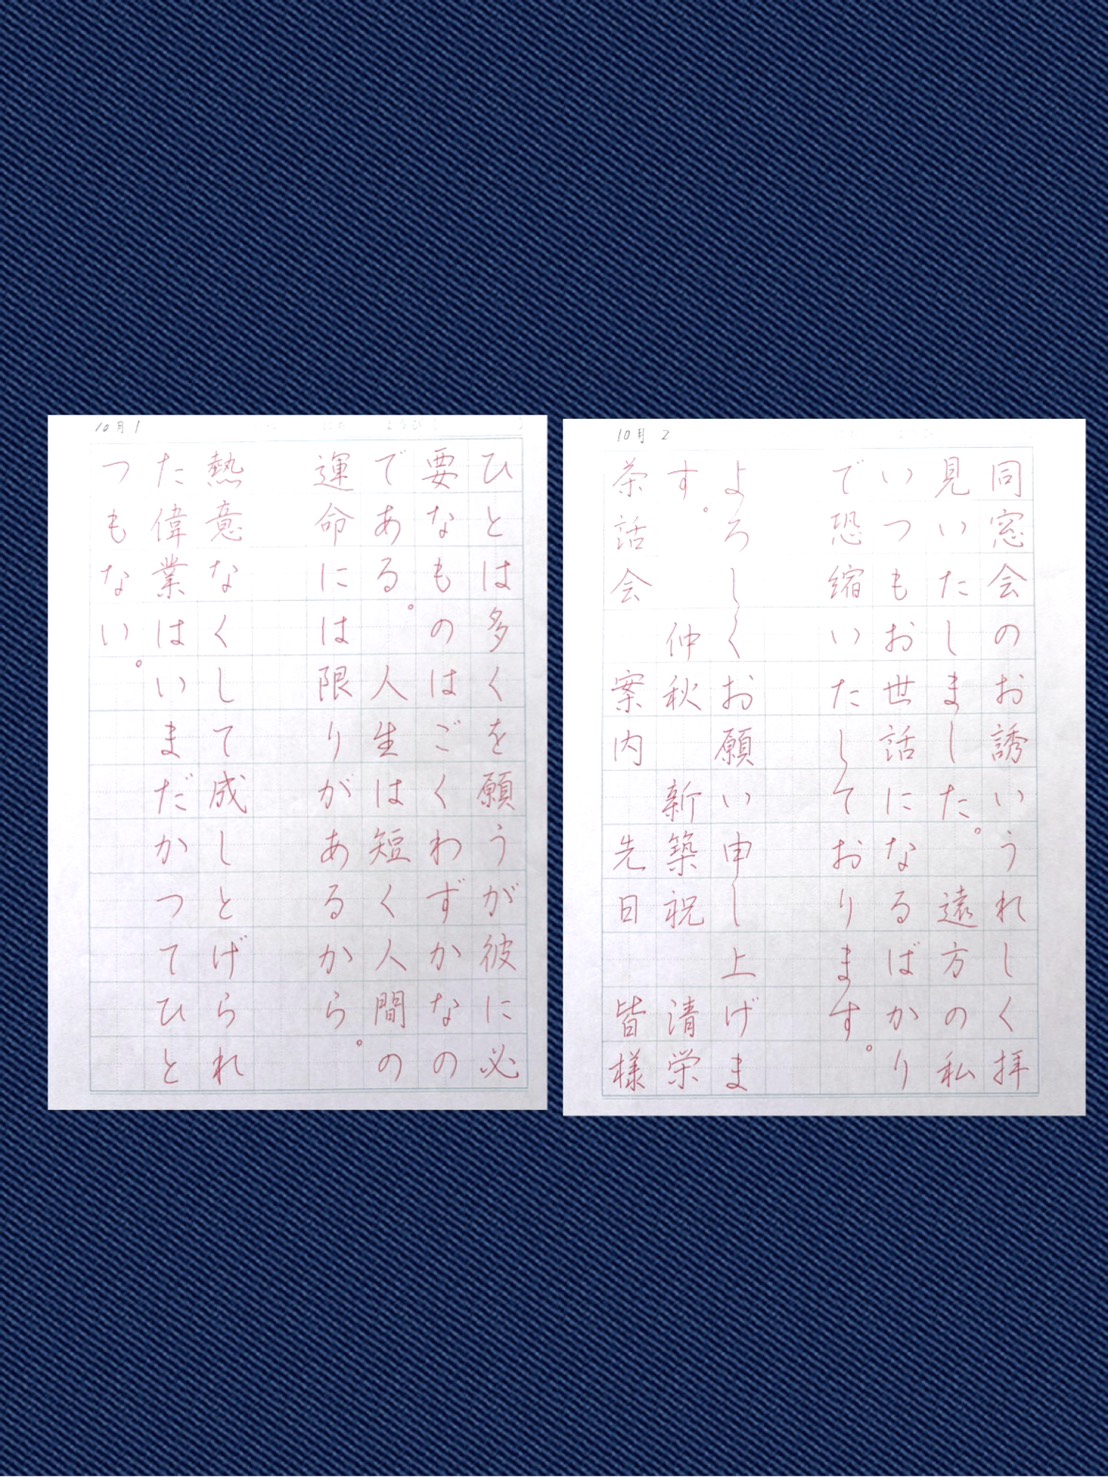 10月1
ひとは多くを願うが彼に必
要なものはごくわずかなの
である。人生は短く人間の
運命には限りがあるから。
熱意なくして成しとげられ
た偉業はいまだかつてひと
つもない。
10月2
同窓会のお誘いうれしく拝
見いたしました。遠方の私
いつもお世話になるばかり
で恐縮いたしております。
よろしくお願い申し上げま
す。 仲秋 新築祝 清栄
茶話会 案内 先日 皆様